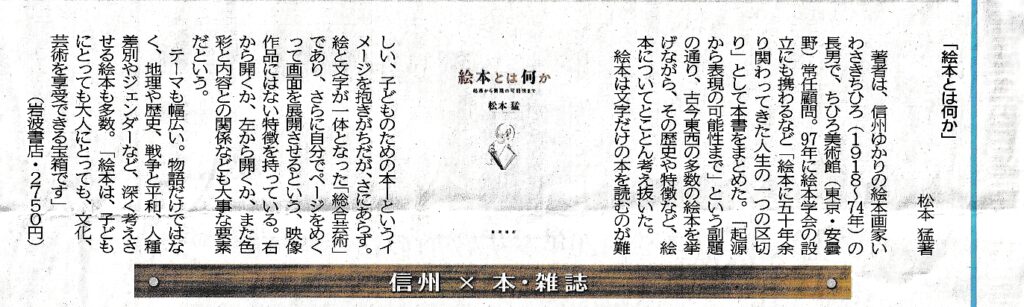 「絵本とは何か」
松本 猛著
著者は、信州ゆかりの絵本画家い
わさきちひろ（１９１８〜７４年）の
長男で、ちひろ美術館（東京・安曇
野）常任顧問。９７年に絵本学会の設
立にも携わるなど「絵本に五十年余
り関わってきた人生の一つの区切
り」として本書をまとめた。「起源
から表現の可能性まで」という副題
の通り、古今東西の多数の絵本を挙
げながら、その歴史や特徴など、絵
本についてとことん考え抜いた。
絵本は文字だけの本を読むのが難
絵本とは何か
起源から表現の可能性まで
松本 猛
しい、子どものための本―というイ
メージを抱きがちだが、さにあらず。
絵と文字が一体となった「総合芸術」
であり、さらに自分でページをめく
って画面を展開させるという、映像
作品にはない特徴を持っている。右
から開くか、左から開くか、また色
彩と内容との関係なども大事な要素
だという。
テーマも幅広い。物語だけではな
く、地理や歴史、戦争と平和、人種
差別やジェンダーなど、深く考えさ
せる絵本も多数。「絵本は、子ども
にとっても大人にとっても、文化、
芸術を享受できる宝箱です」
（岩波書店・２７５０円）
信州 × 本・雑誌